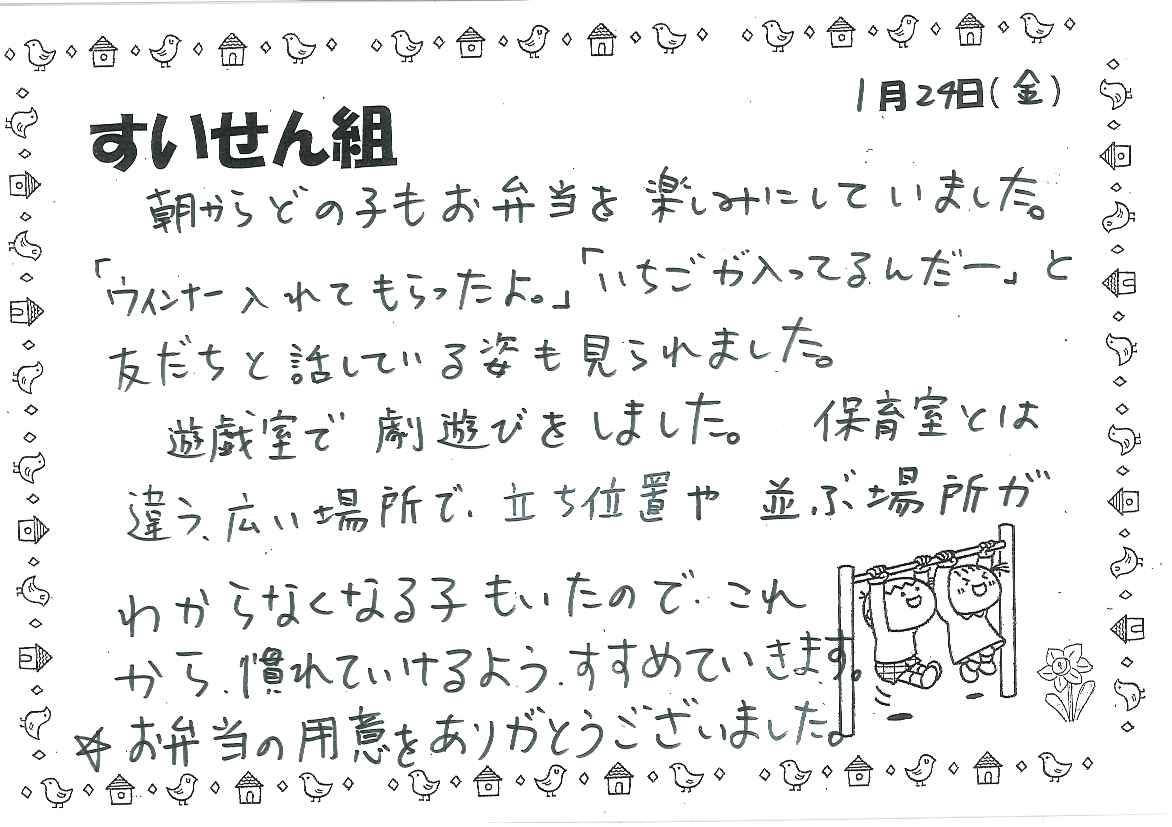 1月24日(金)
すいせん組
朝からどの子もお弁当を楽しみにしていました。
「ウインナー入れてもらったよ。」「いちごが入ってるんだー」と
友だちと話している姿も見られました。
遊戯室で劇遊びをしました。 保育室とは
違う、広い場所で、立ち位置や並ぶ場所が
わからなくなる子もいたので、これ
から、慣れていけるよう、すすめていきます。
☆お弁当の用意をありがとうございました。